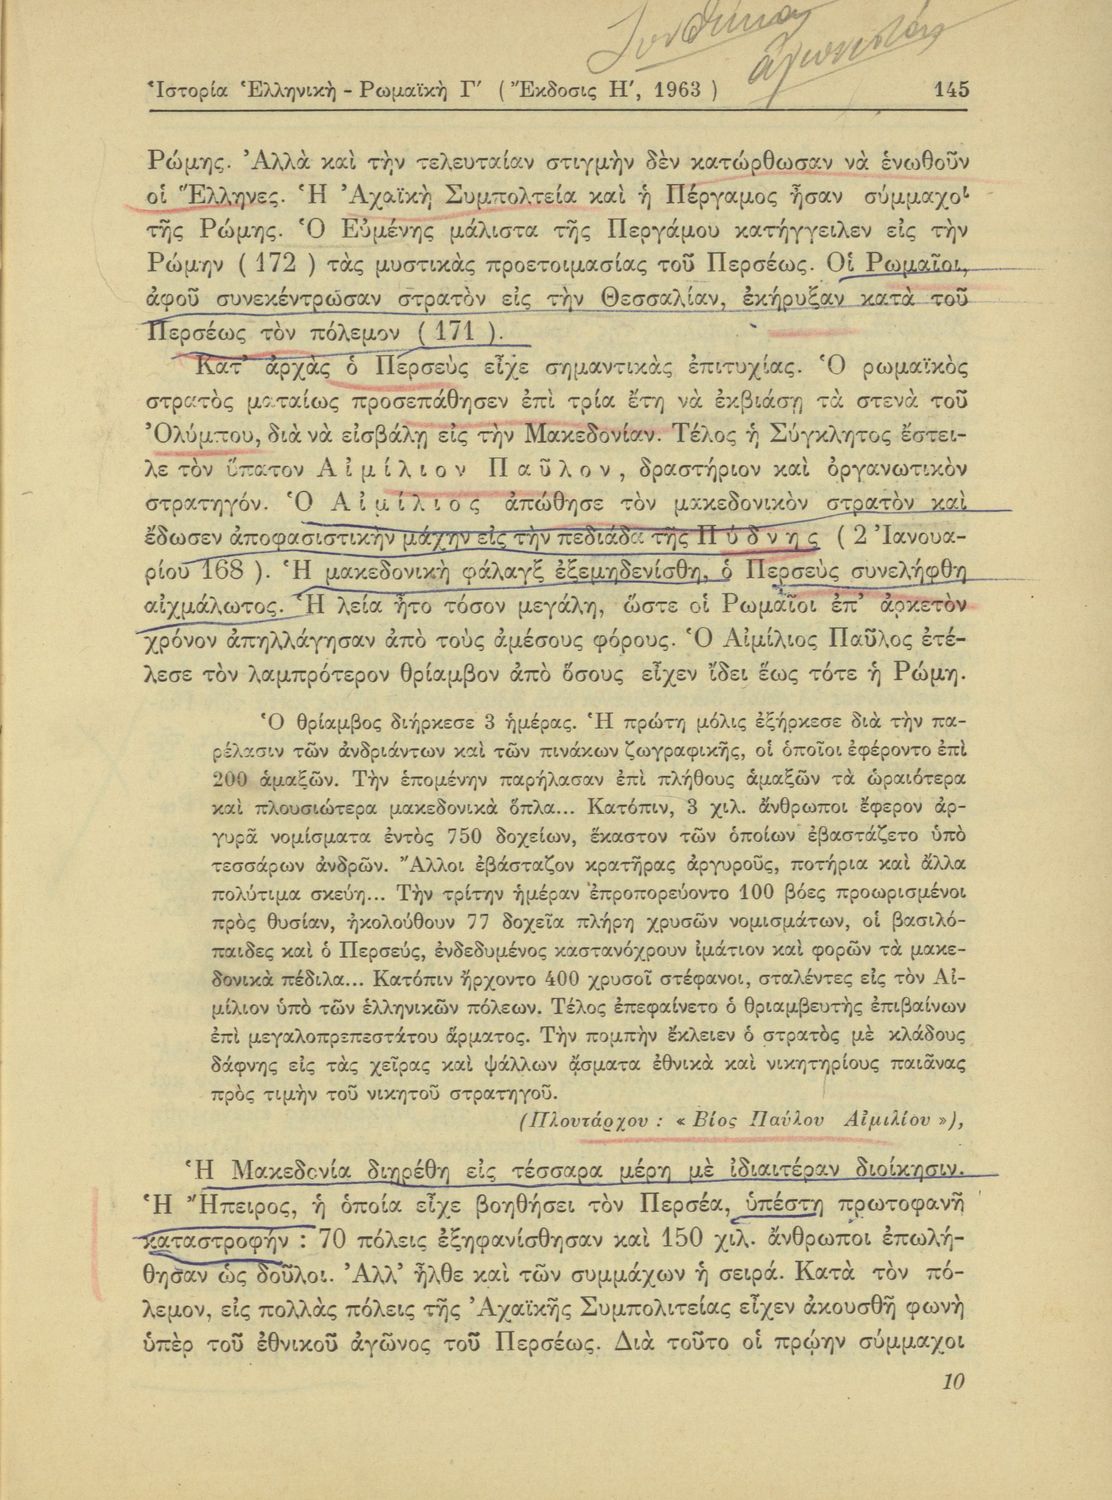 Συνθήκαι
Ἱστορία Ἑλληνικὴ - Ρωμαϊκὴ Γ′ ( Ἔκδοσις Η′, 1963 )
145
Ρώμης. Ἀλλὰ καὶ τὴν τελευταίαν στιγμὴν δὲν κατώρθωσαν νὰ ἑνωθοῦν
οἱ Ἕλληνες. Ἡ Ἀχαϊκὴ Συμπολτεία καὶ ἡ Πέργαμος ἦσαν σύμμαχοι
τῆς Ρώμης. Ὁ Εὐμένης μάλιστα τῆς Περγάμου κατήγγειλεν εἰς τὴν
Ρώμην ( 172 ) τὰς μυστικὰς προετοιμασίας τοῦ Περσέως. Οἱ Ρωμαῖοι,
ἀφοῦ συνεκέντρωσαν στρατὸν εἰς τὴν Θεσσαλίαν, ἐκήρυξαν κατὰ τοῦ
Περσέως τὸν πόλεμον ( 171 ).
Κατ’ ἀρχὰς ὁ Περσεὺς εἶχε σημαντικὰς ἐπιτυχίας. Ὁ ρωμαϊκὸς
στρατὸς ματαίως προσεπάθησεν ἐπὶ τρία ἔτη νὰ ἐκβιάσῃ τὰ στενὰ τοῦ
Ὀλύμπου, διὰ νὰ εἰσβάλῃ εἰς τὴν Μακεδονίαν. Τέλος ἡ Σύγκλητος ἔστει-
λε τὸν ὕπατον Αἰμίλιον Παῦλον, δραστήριον καὶ ὀργανωτικὸν
στρατηγόν. Ὁ Αἰμίλιος ἀπώθησε τὸν μακεδονικὸν στρατὸν καὶ
ἔδωσεν ἀποφασιστικὴν μάχην εἰς τὴν πεδιάδα τῆς Πύδνης ( 2 Ἰανουα-
ρίου 168 ). Ἡ μακεδονικὴ φάλαγξ ἐξεμηδενίσθη, ὁ Περσεὺς συνελήφθη
αἰχμάλωτος. Ἡ λεία ἦτο τόσον μεγάλη, ὥστε οἱ Ρωμαῖοι ἐπ’ ἀρκετὸν
χρόνον ἀπηλλάγησαν ἀπὸ τοὺς ἀμέσους φόρους. Ὁ Αἰμίλιος Παῦλος ἐτέ-
λεσε τὸν λαμπρότερον θρίαμβον ἀπὸ ὅσους εἶχεν ἴδει ἕως τότε ἡ Ρώμη.
Ὁ θρίαμβος διήρκεσε 3 ἡμέρας. Ἡ πρώτη μόλις ἐξήρκεσε διὰ τὴν πα-
ρέλασιν τῶν ἀνδριάντων καὶ τῶν πινάκων ζωγραφικῆς, οἱ ὁποῖοι ἐφέροντο ἐπὶ
200 ἁμαξῶν. Τὴν ἑπομένην παρήλασαν ἐπὶ πλήθους ἁμαξῶν τὰ ὡραιότερα
καὶ πλουσιώτερα μακεδονικὰ ὅπλα... Κατόπιν, 3 χιλ. ἄνθρωποι ἔφερον ἀρ-
γυρᾶ νομίσματα ἐντὸς 750 δοχείων, ἕκαστον τῶν ὁποίων ἐβαστάζετο ὑπὸ
τεσσάρων ἀνδρῶν. Ἄλλοι ἐβάσταζον κρατῆρας ἀργυροῦς, ποτήρια καὶ ἄλλα
πολύτιμα σκεύη... Τὴν τρίτην ἡμέραν ἐπροπορεύοντο 100 βόες προωρισμένοι
πρὸς θυσίαν, ἠκολούθουν 77 δοχεῖα πλήρη χρυσῶν νομισμάτων, οἱ βασιλό-
παιδες καὶ ὁ Περσεύς, ἐνδεδυμένος καστανόχρουν ἱμάτιον καὶ φορῶν τὰ μακε-
δονικὰ πέδιλα... Κατόπιν ἤρχοντο 400 χρυσοῖ στέφανοι, σταλέντες εἰς τὸν Αἰ-
μίλιον ὑπὸ τῶν ἑλληνικῶν πόλεων. Τέλος ἐπεφαίνετο ὁ θριαμβευτὴς ἐπιβαίνων
ἐπὶ μεγαλοπρεπεστάτου ἅρματος. Τὴν πομπὴν ἔκλειεν ὁ στρατὸς μὲ κλάδους
δάφνης εἰς τὰς χεῖρας καὶ ψάλλων ᾄσματα ἐθνικὰ καὶ νικητηρίους παιᾶνας
πρὸς τιμὴν τοῦ νικητοῦ στρατηγοῦ.
(Πλουτάρχου : « Βίος Παύλου Αἰμιλίου »),
Ἡ Μακεδονία διῃρέθη εἰς τέσσαρα μέρη μὲ ἰδιαιτέραν διοίκησιν.
Ἡ Ἤπειρος, ἡ ὁποία εἶχε βοηθήσει τὸν Περσέα, ὑπέστη πρωτοφανῆ
καταστροφήν : 70 πόλεις ἐξηφανίσθησαν καὶ 150 χιλ. ἄνθρωποι ἐπωλή-
θησαν ὡς δοῦλοι. Ἀλλ’ ἦλθε καὶ τῶν συμμάχων ἡ σειρά. Κατὰ τὸν πό-
λεμον, εἰς πολλὰς πόλεις τῆς Ἀχαϊκῆς Συμπολιτείας εἶχεν ἀκουσθῆ φωνὴ
ὑπὲρ τοῦ ἐθνικοῦ ἀγῶνος τοῦ Περσέως. Διὰ τοῦτο οἱ πρῴην σύμμαχοι
10